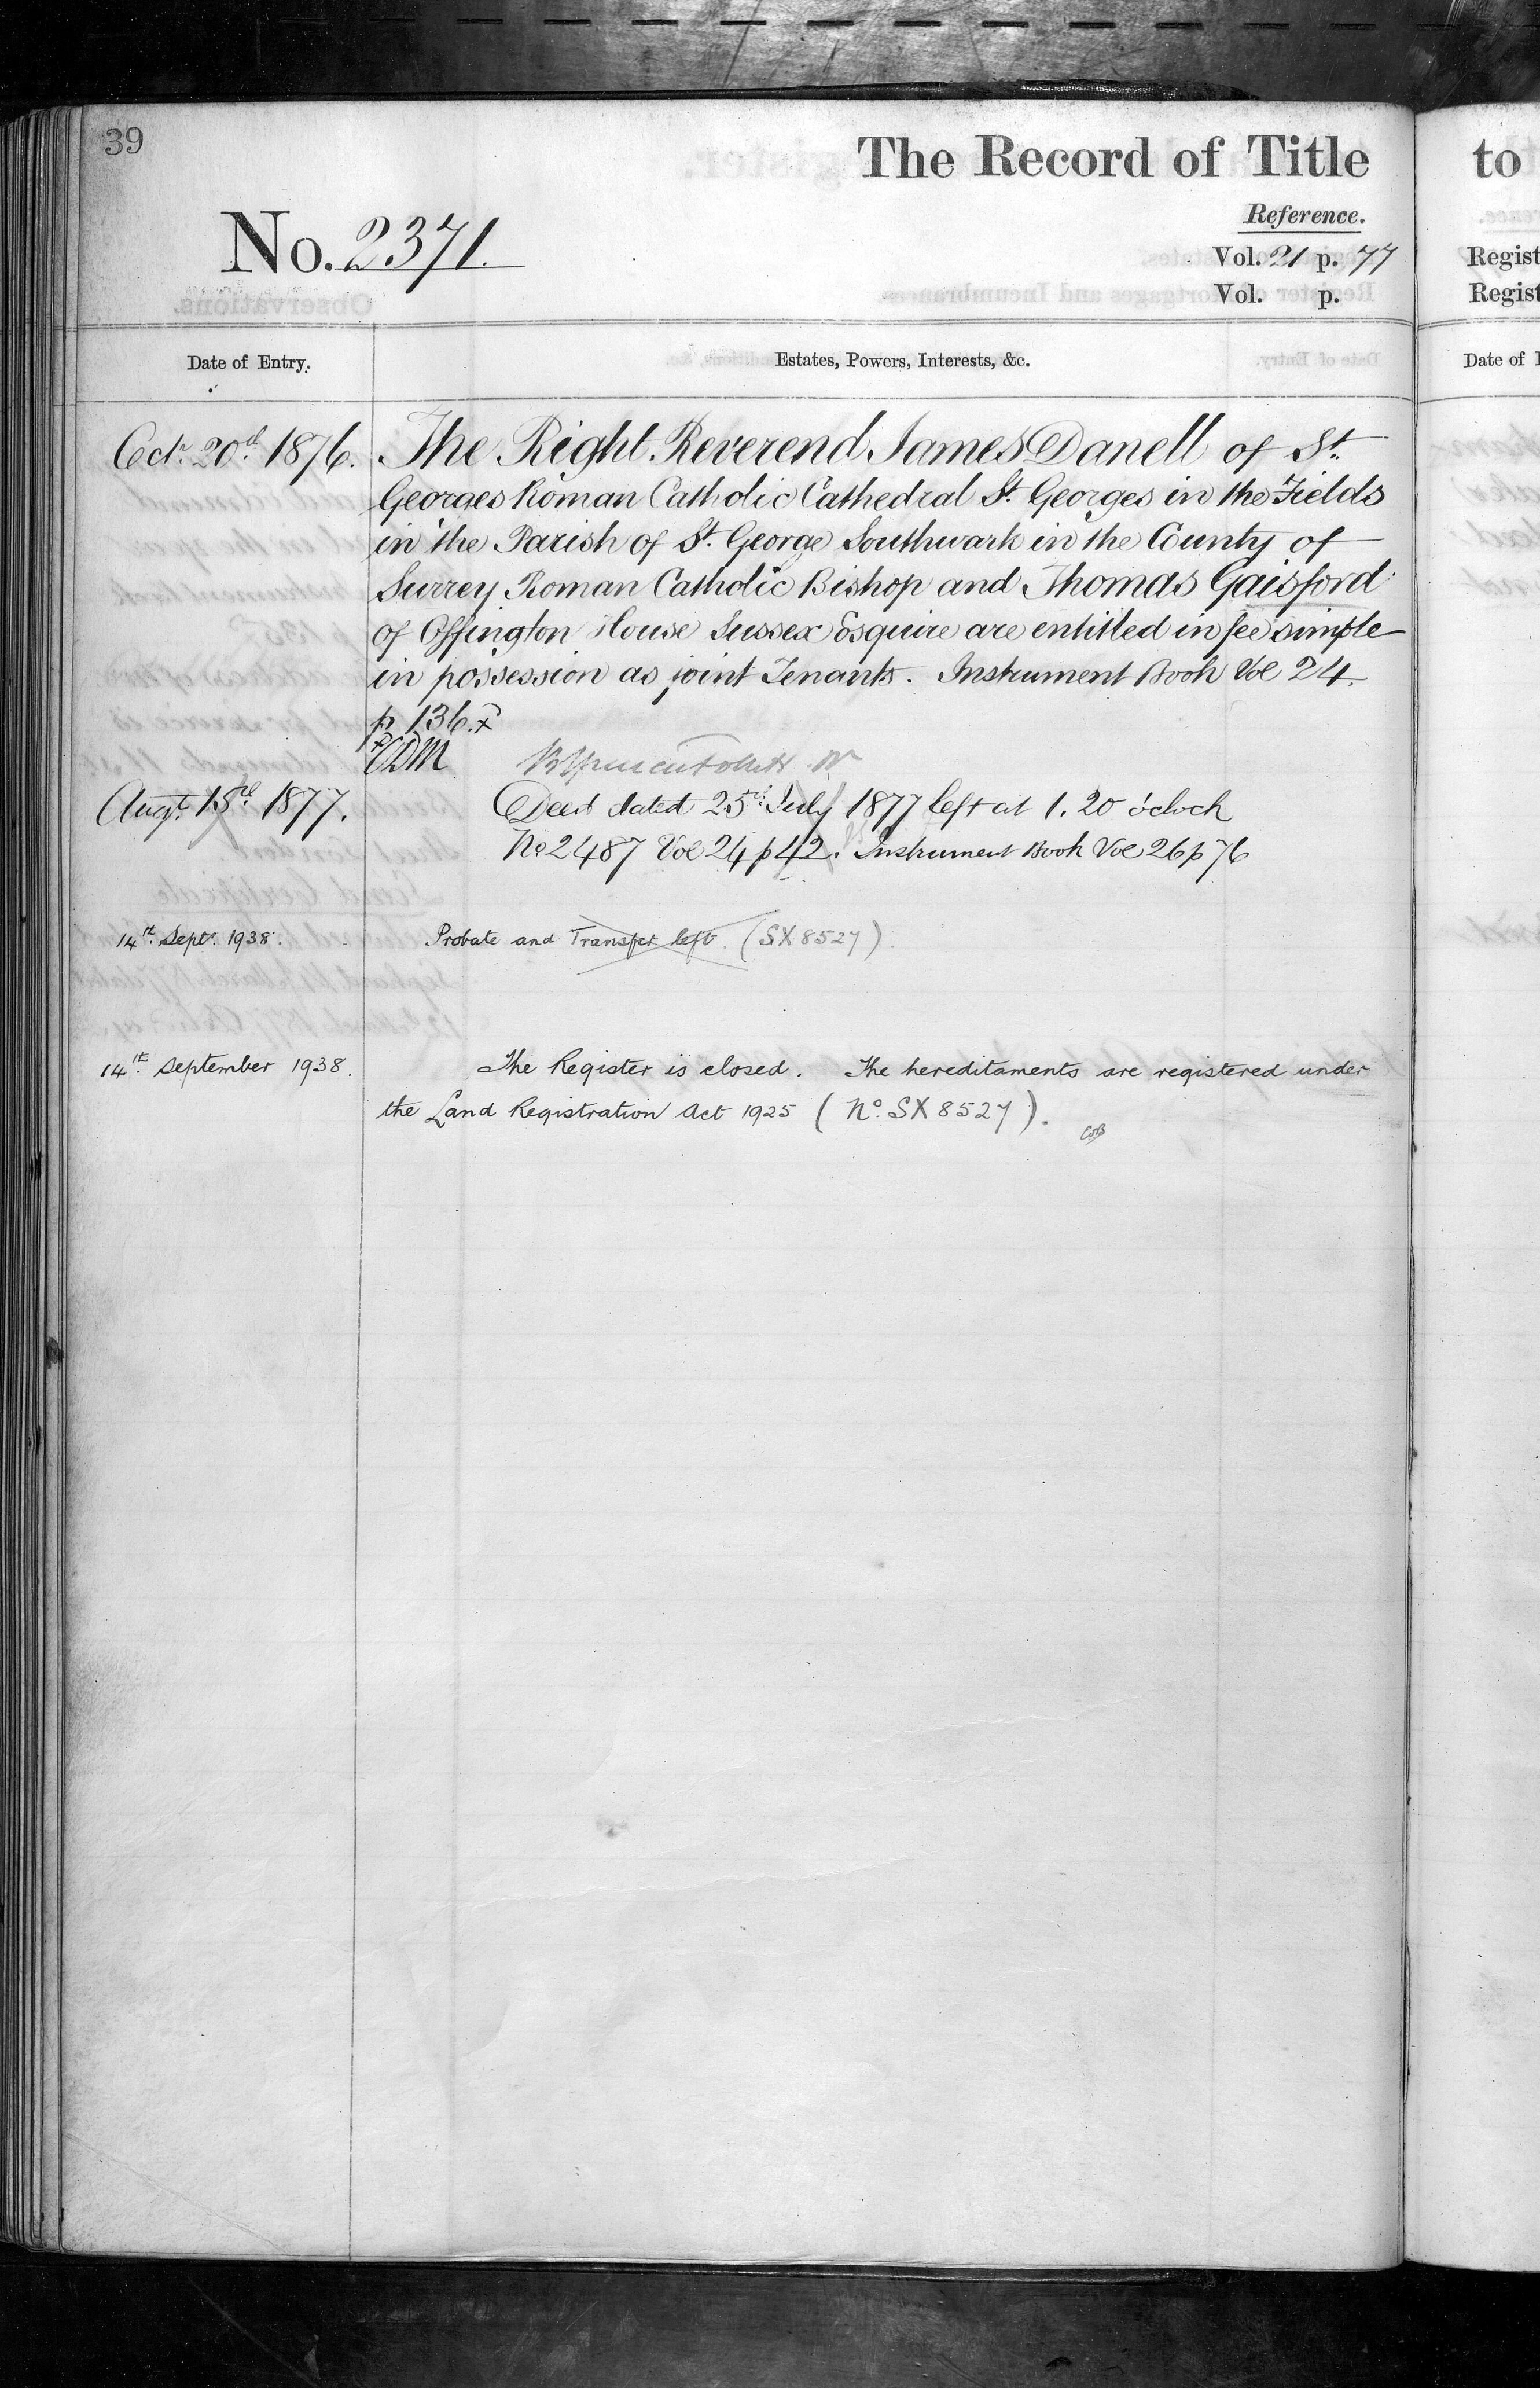 39
The Record of Title
to
Reference.
No. 2371.
Vol. 21 p. 77
Regist
Vol. p.
Regist
Date of Entry.
Estates, Powers, Interests, &c.
Date of
Octr. 20th 1876.
The Right Reverend James Danell of St.
Georges Roman Catholic Cathedral St. Georges in the Fields
in the Parish of St. George Southwark in the County of
Surrey Roman Catholic Bishop and Thomas Gaisford
of Offington House Sussex Esquire are entitled in fee simple
in possession as joint Tenants. Instrument Book Vol 24
p 136.
Augt. 15th 1877.
Deed dated 25th July 1877 left at 1.20 o'clock
No 2487 Vol 24 p 42. Instrument Book Vol 26 p 76
14th Septr. 1938.
Probate and Transfer left. (SX8527).
14th September 1938.
The Register is closed. The hereditaments are registered under
the Land Registration Act 1925 (No. SX8527).